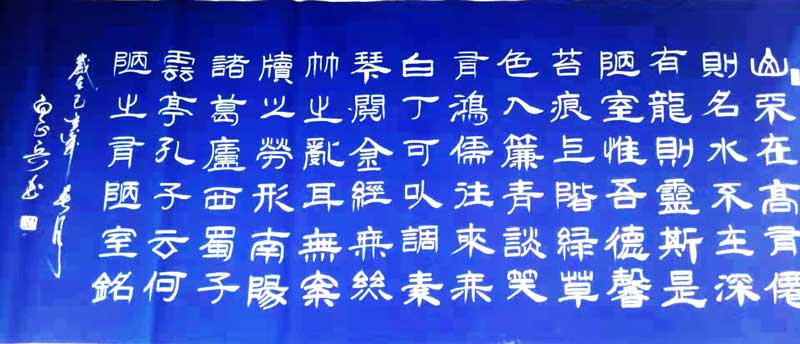 山不在高有僊
則名水不在深
有龍則靈斯是
陋室惟吾德馨
苔痕上階綠草
色入簾青談笑
有鴻儒往來無
白丁可以調素
琴閱金經無絲
竹之亂耳無案
牘之勞形南陽
諸葛廬西蜀子
雲亭孔子云何
陋之有陋室銘
歲在己亥年月